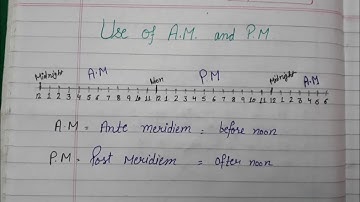 Use of A.M. and P.M
Midnight A.M Non P.M Midnight A.M
12 1 2 3 4 5 6 7 8 9 10 11 12 1 2 3 4 5 6 7 8 9 10 11 12 1 2 3 4 5 6
A.M = Ante meridiem = before noon
P.M = Post Meridiem = after noon